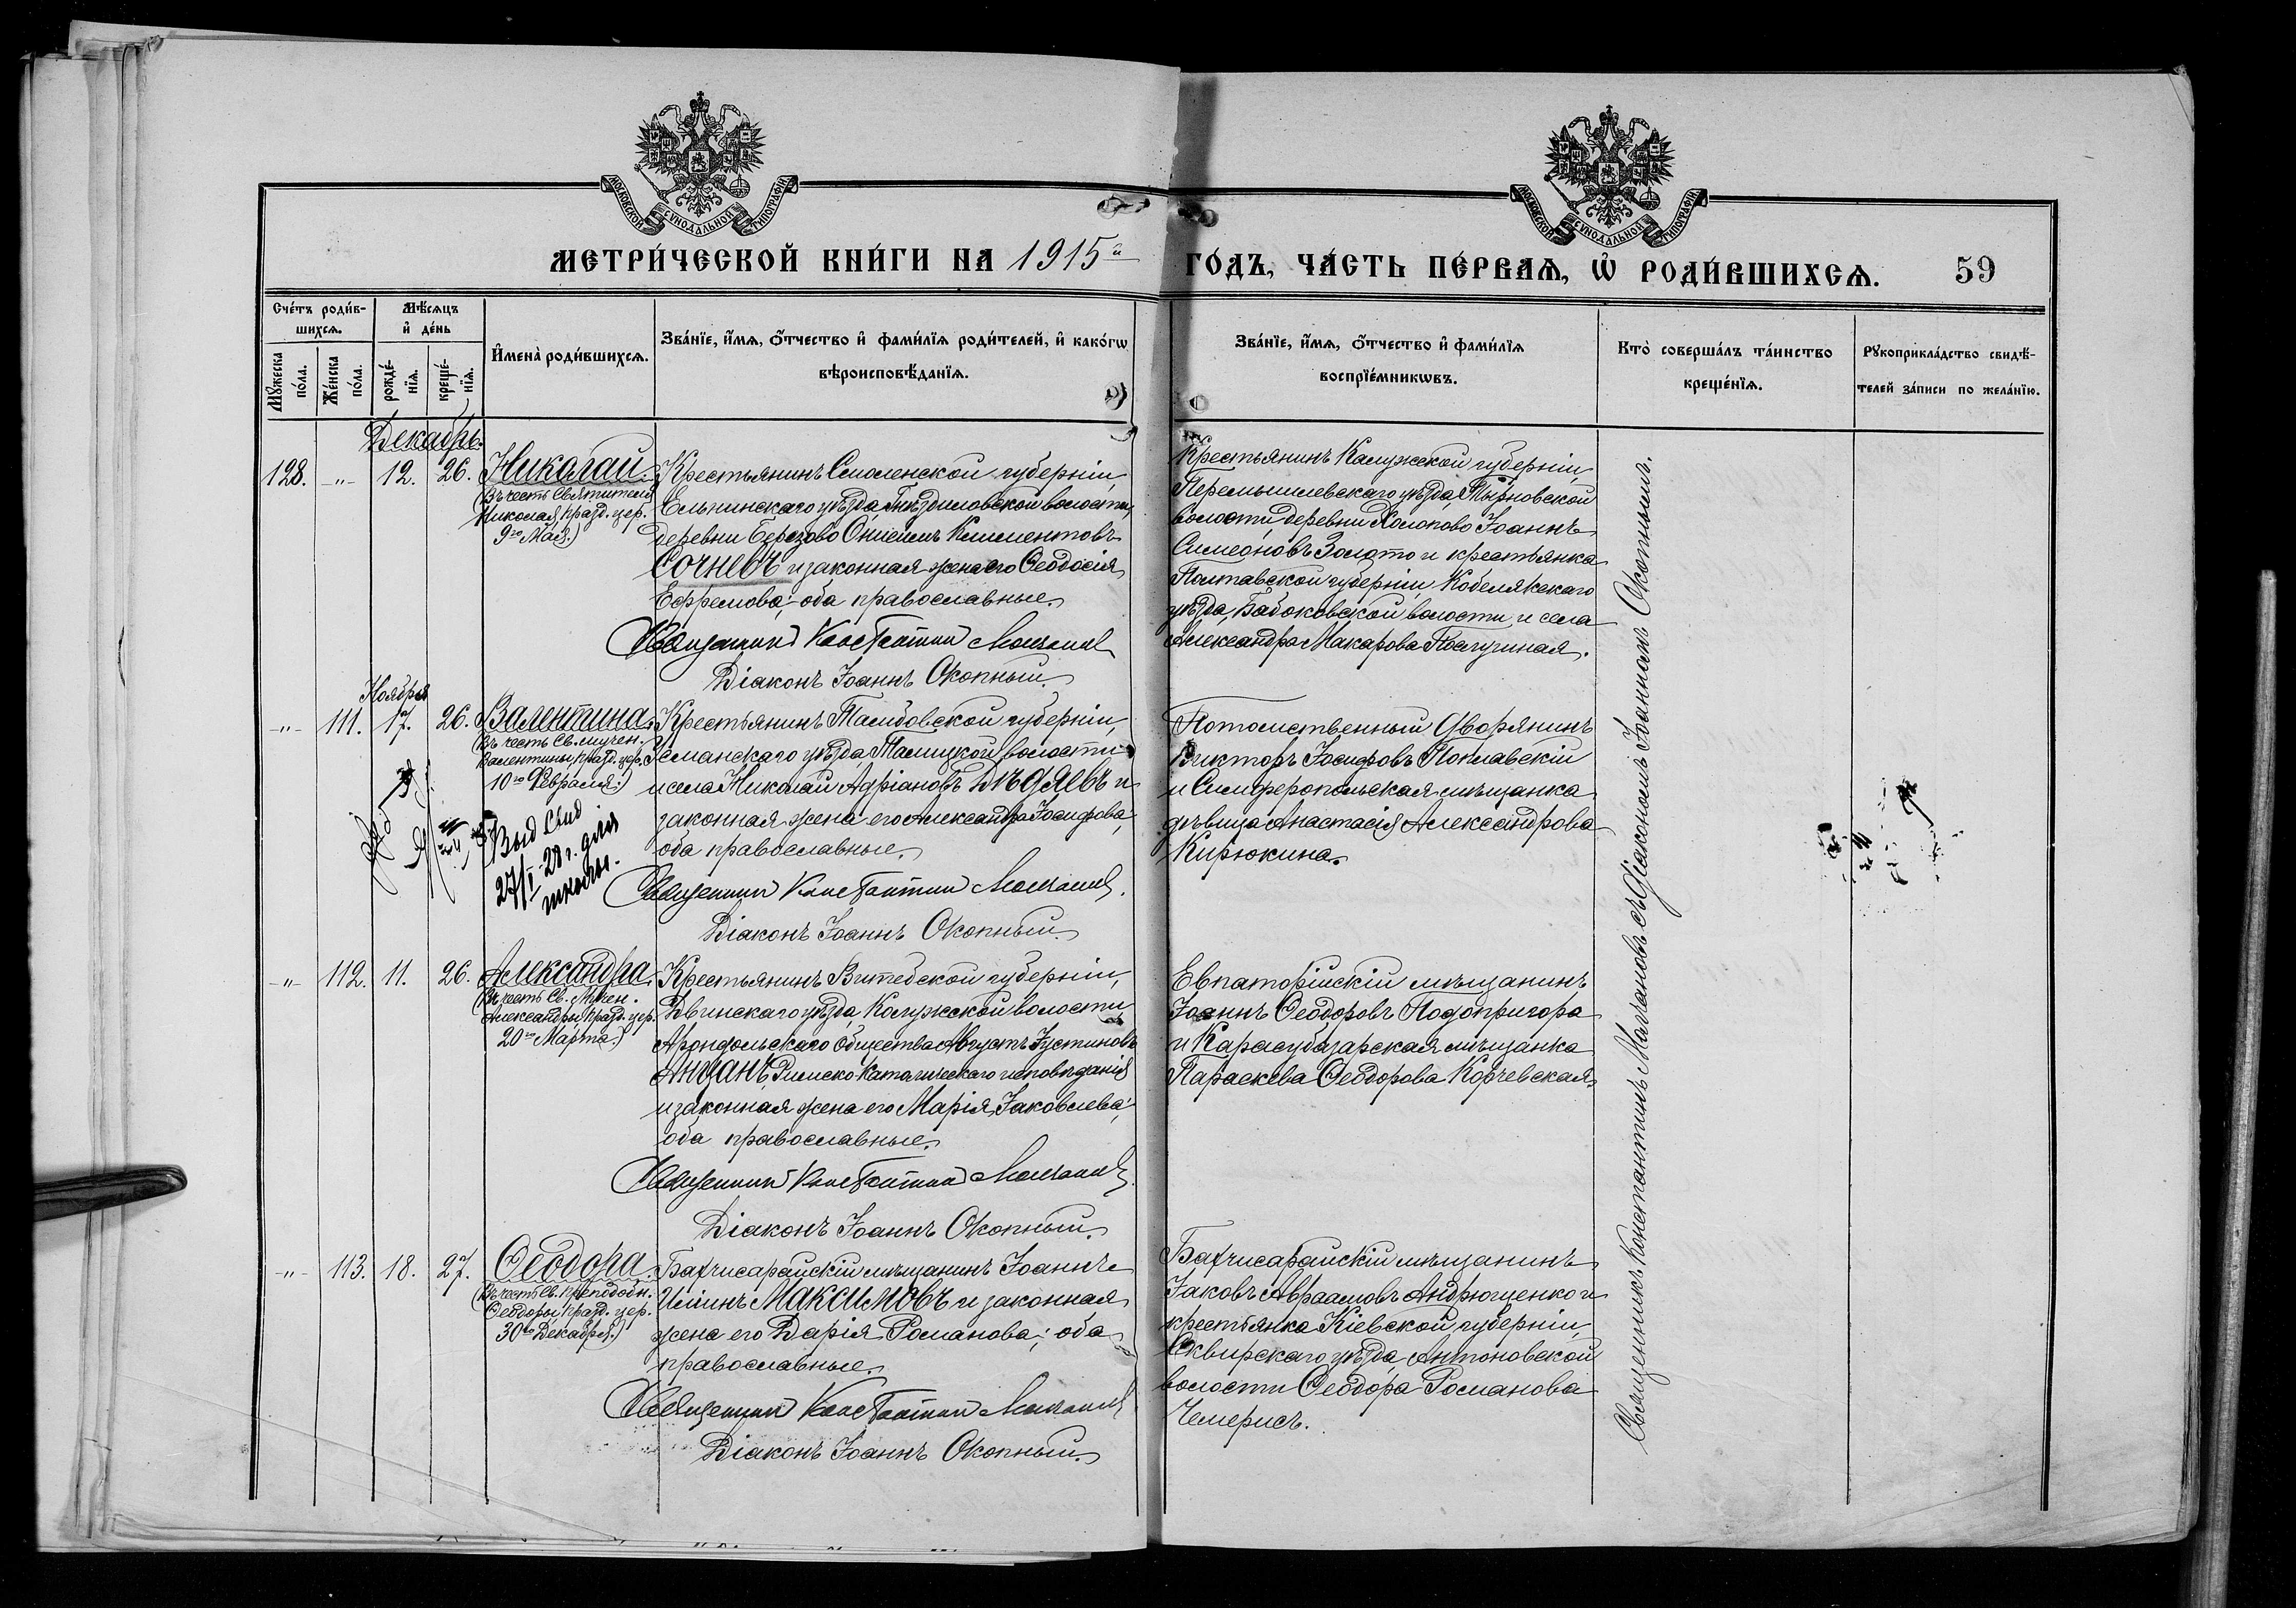 МОСКОВСКОЙ СѴНОДАЛЬНОЙ ТИПОГРАФІИ
МОСКОВСКОЙ СѴНОДАЛЬНОЙ ТИПОГРАФІИ
МЕТРИ́ЧЕСКОЙ КНИ́ГИ НА 1915й ГО́ДЪ, ЧА́СТЬ ПЕ́РВАЯ, Ѡ҆ РОДИ́ВШИХСЯ. 59
Сче́тъ роди́в-
шихся.
Мꙋ́жеска
по́ла.
Же́нска
по́ла.
Мѣ́сяцъ
и҆ де́нь
рожде́-
нїя.
креще́-
нїя.
И҆мена̀ роди́вшихся.
Зва́нїе, и҆́мя, ѻ҆́тчество и҆ фами́лїя роди́телей, и҆ како́гѡ
вѣроисповѣ́данїя.
Зва́нїе, и҆́мя, ѻ҆́тчество и҆ фами́лїя
воспрїе́мникѡвъ.
Кто̀ соверша́лъ та́инство
креще́нїя.
Рꙋкоприкла́дство свидѣ́-
телей за́писи по жела́нїю.
Декабрь.
128. -"- 12. 26. Николай.
(Въ честь Святителя
Николая, празд. цер.
9го Мая.)
Крестьянинъ Смоленской губерніи,
Ельнинскаго уѣзда, Гнѣздиловской волости,
деревни Березово Онисимъ Климентовъ
Сочневъ и законная жена его Ѳеодосія
Ефремова; оба православные.
Священникъ Константинъ Молчановъ
Діаконъ Іоаннъ Окопный.
Крестьянинъ Калужской губерніи,
Перемышлевскаго уѣзда, Тырновской
волости, деревни Холопово Іоаннъ
Симеоновъ Золото и крестьянка
Полтавской губерніи, Кобелякскаго
уѣзда, Бабоковской волости, и села
Александра Макарова Послушная.
Ноябрь
-"- 111. 17. 26. Валентина.
(Въ честь Св. мучен.
Валентины, празд. цер.
10го Февраля.)
Крестьянинъ Тамбовской губерніи,
Усманскаго уѣзда, Талицкой волости
и села Николай Адріановъ Бѣдяевъ и
законная жена его Александра Іосифова;
оба православные.
Священникъ Константинъ Молчановъ.
Діаконъ Іоаннъ Окопный.
Потомственный Дворянинъ
Викторъ Іосифовъ Поплавскій
и Симферопольская мѣщанка
дѣвица Анастасія Александрова
Кирюкина.
27/I-28 г. для
школы.
-"- 112. 11. 26. Александра.
(Въ честь Св. Мучен.
Александры, празд. цер.
20го Марта.)
Крестьянинъ Витебской губерніи,
Двинскаго уѣзда, Колужской волости,
Арондольскаго Общества Августъ Іустиновъ
Анцанъ, Римско-Католическаго исповѣданія
и законная жена его Марія Іаковлева;
оба православные.
Священникъ Константинъ Молчановъ.
Діаконъ Іоаннъ Окопный.
Евпаторійскій мѣщанинъ
Іоаннъ Ѳеодоровъ Подопригора
и Карасубазарская мѣщанка
Параскева Ѳеодорова Корчевская.
-"- 113. 18. 27. Ѳеодора.
(Въ честь Св. Преподобн.
Ѳеодоры, празд. цер.
30го Декабря.)
Бахчисарайскій мѣщанинъ Іоаннъ
Иліинъ Максимовъ и законная
жена его Дарія Романова; оба
православные.
Священникъ Константинъ Молчановъ
Діаконъ Іоаннъ Окопный.
Бахчисарайскій мѣщанинъ
Іаковъ Авраамовъ Андрющенко и
крестьянка Кіевской губерніи,
Сквирскаго уѣзда, Антоновской
волости Ѳеодора Романова
Чемерисъ.
Священникъ Константинъ Молчановъ съ Діакономъ Іоанномъ Окопнымъ.